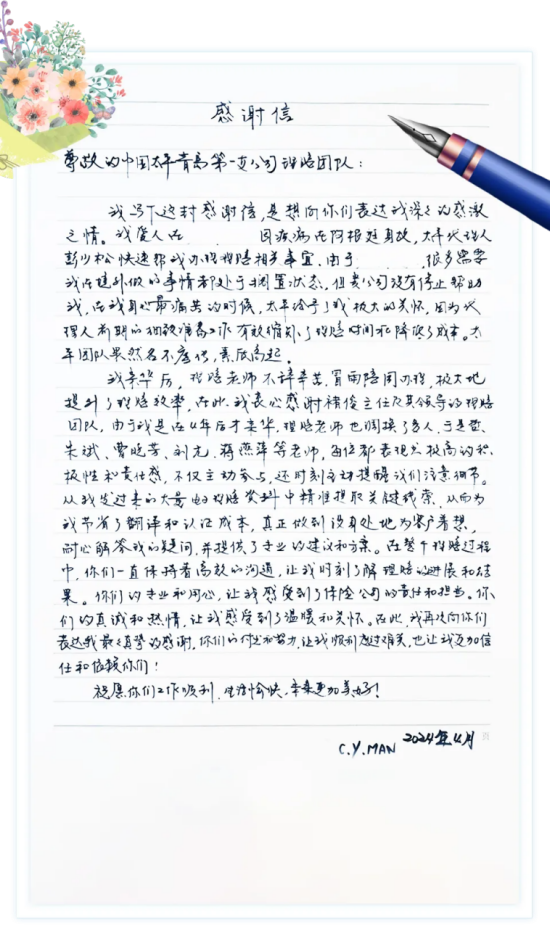 感谢信
尊敬的中国太平青岛第一支公司理赔团队：
我写下这封感谢信，是想向你们表达我深深的感激
之情。我爱人在 因疾病在阿根廷身故，太平代理人
彭少松快速帮我办理理赔相关事宜，由于 很多需要
我在境外做的事情都处于搁置状态，但贵公司没有停止帮助
我，在我身心最痛苦的时候，太平给予了我极大的关怀，因为代
理人前期的细致准备工作有效缩短了理赔时间和降低了成本。太
平团队果然名不虚传，素质高超。
我来华后，理赔老师不辞辛苦，冒雨陪同办理，极大地
提升了理赔效率，在此，我衷心感谢褚俊主任及其领导的理赔
团队，由于我是在4年后才来华，理赔老师也调换了多人，于是
朱斌、曹晓芳、刘尤、蒋燕萍等老师，每位都表现出极高的积
极性和责任感，不仅主动参与，还时刻主动提醒我们注意细节。
从我发过来的大量电子理赔资料中精准提取关键线索，从而为
我节省了翻译和认证成本，真正做到设身处地为客户着想，
耐心解答我的疑问，并提供了专业的建议和方案。在整个理赔过程
中，你们一直保持着高效的沟通，让我时刻了解理赔的进展和结
果。你们的专业和用心，让我感受到了保险公司的责任和担当。你
们的真诚和热情，让我感受到了温暖和关怀。在此，我再次向你们
表达我最真挚的感谢，你们的付出和努力，让我顺利度过难关，也让我更加信
任和依赖你们！
祝愿你们工作顺利，生活愉快，未来更加美好！
C.Y.MAN 2024年4月